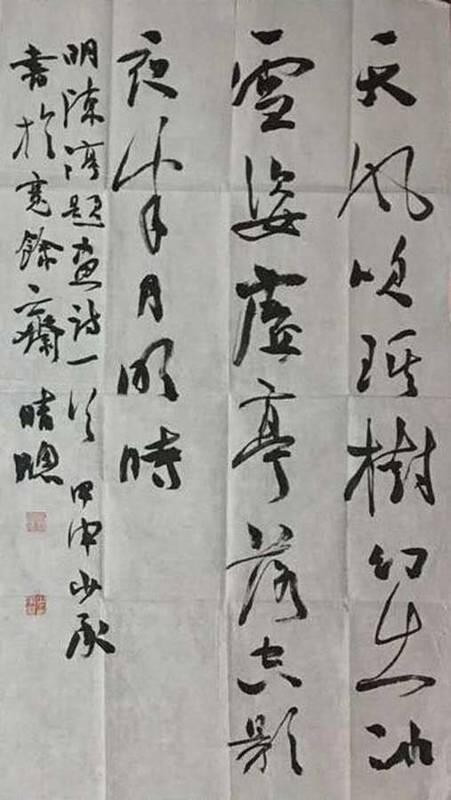 天風吹琪樹幻出冰
雪姿虛亭落空影
夜半月明時
明陳淳題畫詩一首 甲申
書於寬餘齋 晴聰